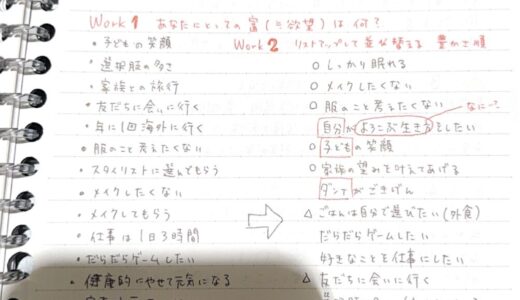 Work1 あなたにとっての富(=欲望)は何?
・子どもの笑顔
・選択肢の多さ
・家族との旅行
・友だちに会いに行く
・年に1回海外に行く
・服のこと考えたくない
・スタイリストに選んでもらう
・メイクしたくない
・メイクしてもらう
・仕事は1日3時間
・だらだらゲームしたい
・健康的にやせて元気になる
Work2 リストアップして並び替える 豊かさ順
○ しっかり眠れる
○ メイクしたくない
○ 服のこと考えたくない
なに~?
自分がよろこぶ生き方をしたい
○ 子どもの笑顔
○ 家族の望みを叶えてあげる
ダンナがごきげん
△ ごはんは自分で選びたい(外食)
だらだらゲームしたい
好きなことを仕事にしたい
△ 友だちに会いに行く